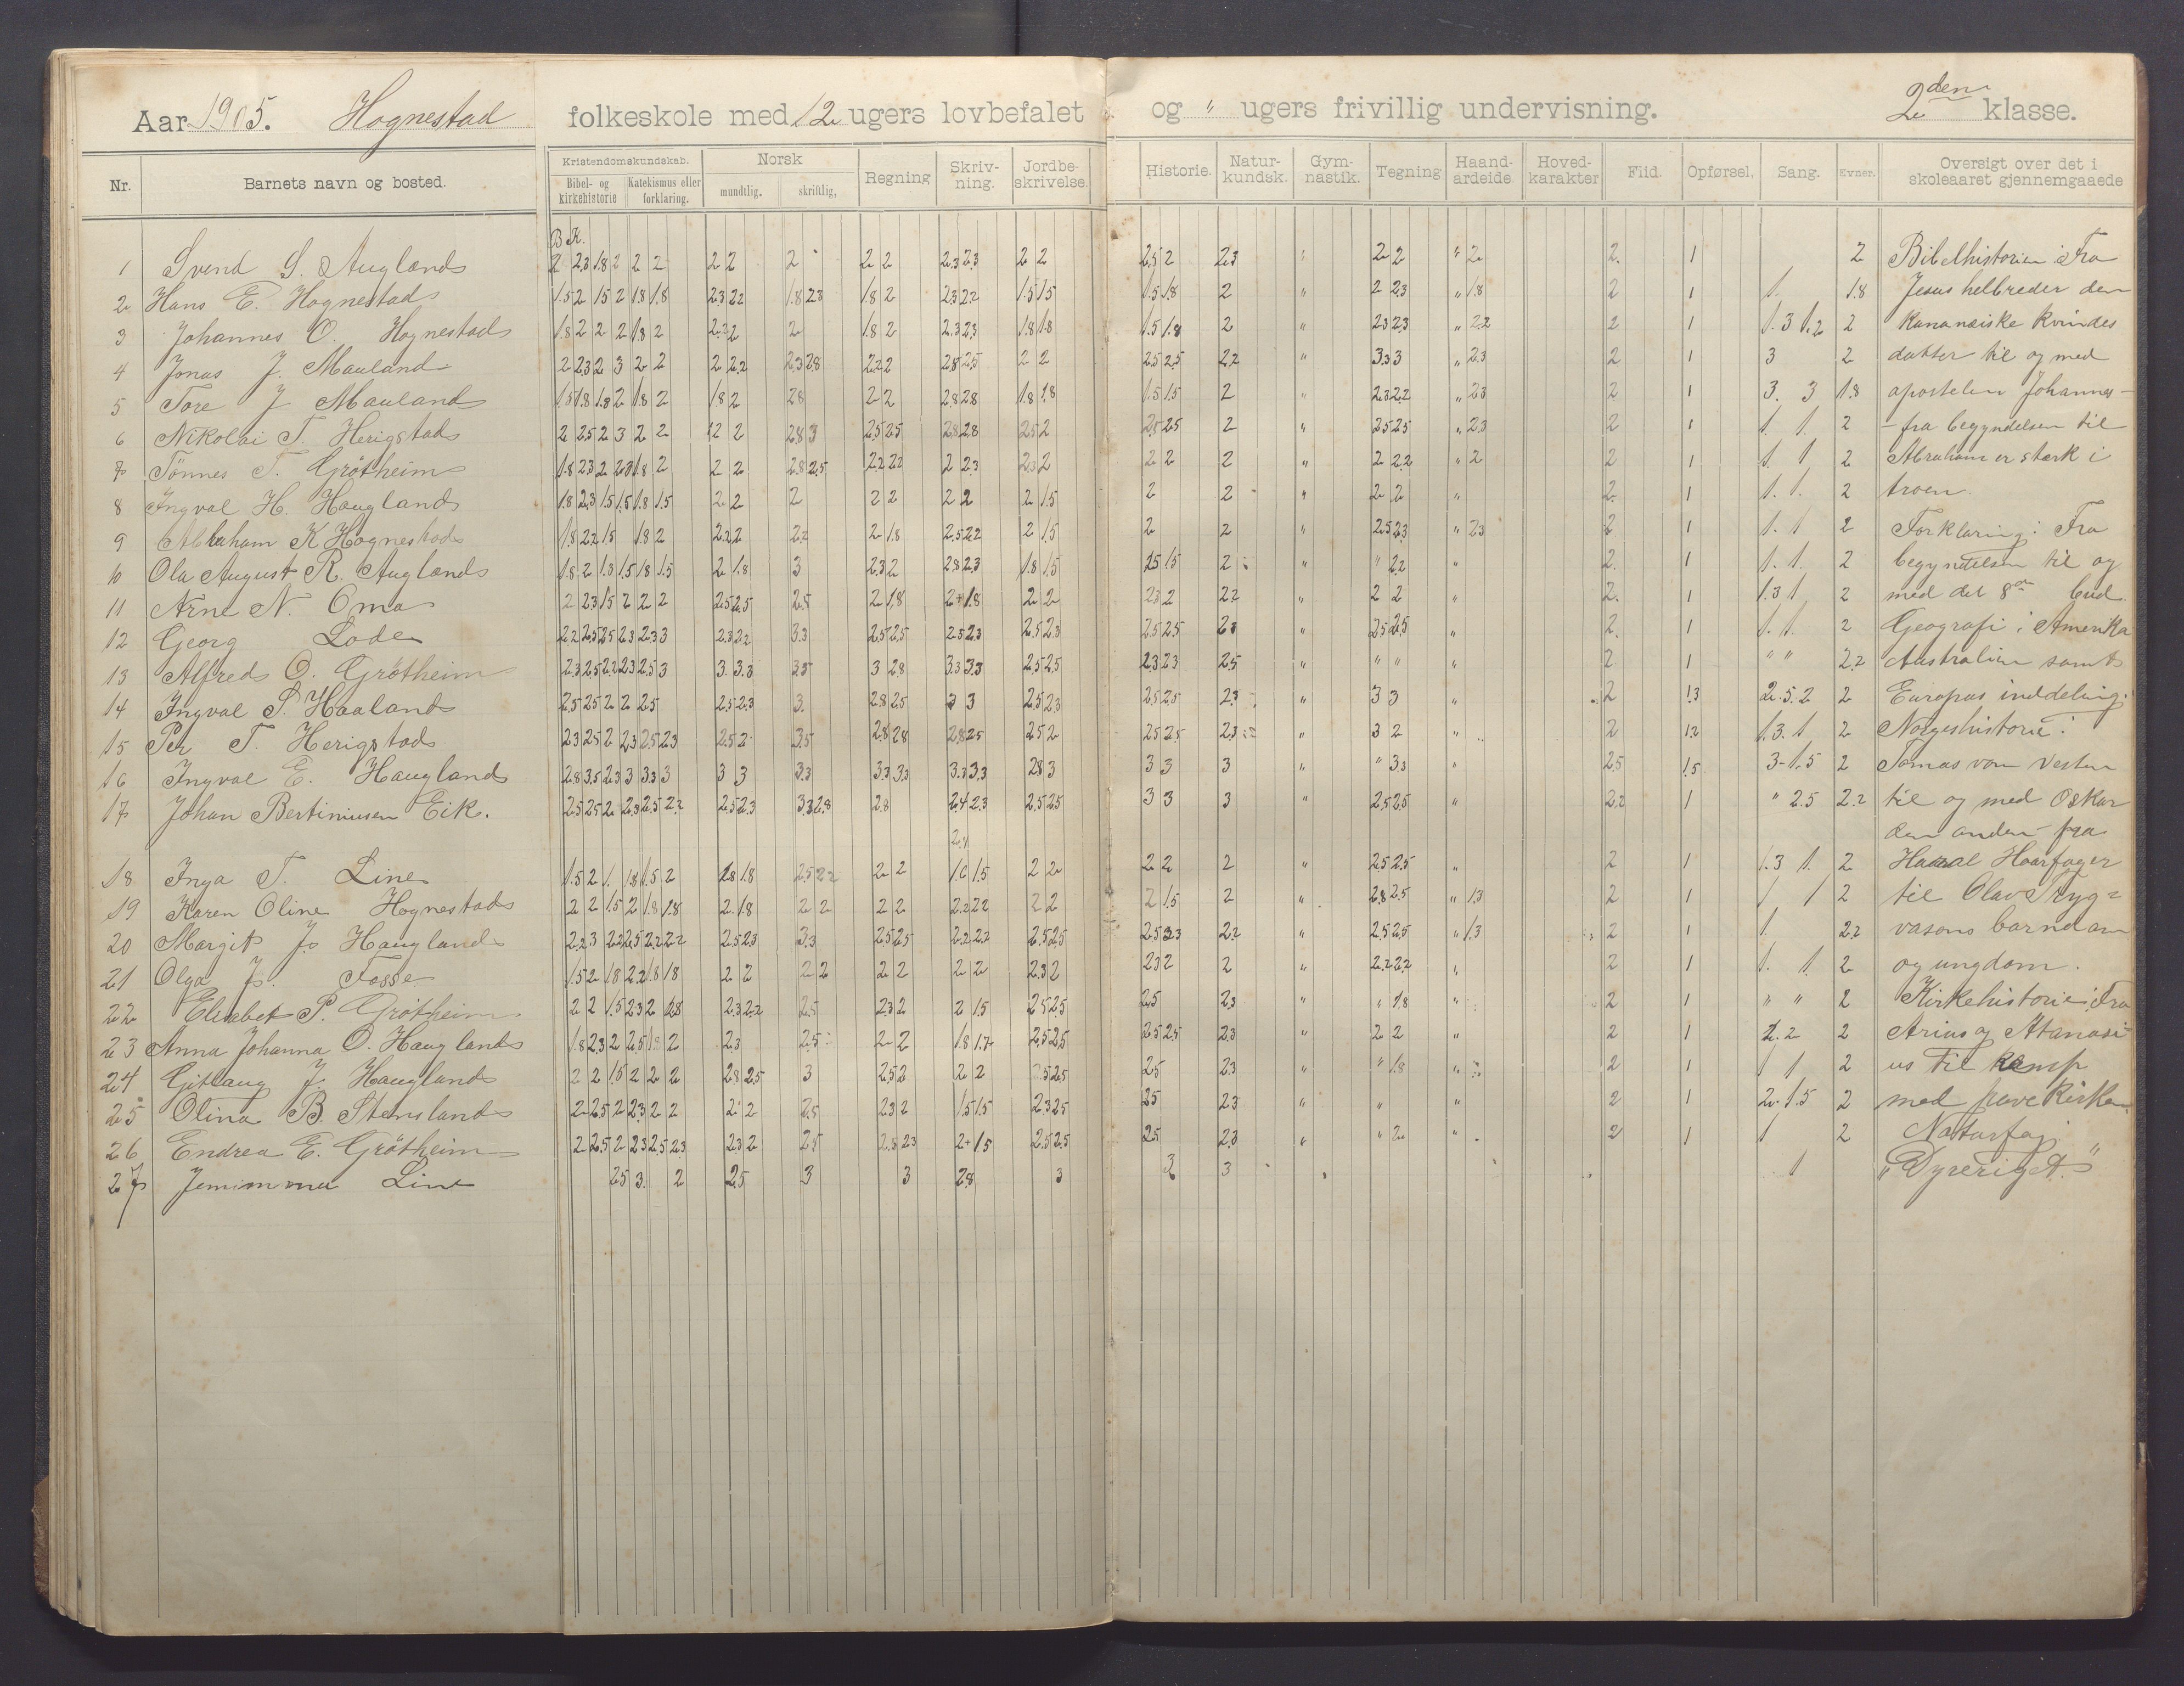 Aar 1905. Hognestad folkeskole med 12 ugers lovbefalet og " ugers frivillig undervisning. 2den klasse.
Nr. Barnets navn og bosted. Kristendomskundskab. Bibel- og kirkehistorie Katekismus eller forklaring. Norsk mundtlig. skriftlig, Regning Skriv-ning. Jordbe-skrivelse. Historie. Natur-kundsk. Gym-nastik. Tegning Haand-arbeide Hoved-karakter Flid. Opførsel. Sang. Evner. Oversigt over det i skoleaaret gjennemgaaede
B K.
1 Svend S. Auglend 2 2,3 1,8 2 2 2 2 2 2 2 2 2,3 2,3 2 2 2,5 2 2,3 " 2 2 " 2 2. 1 2 Bibelhistorien: Fra
2 Hans E. Hognestad 1,5 2 1,5 2 1,8 1,8 2,3 2,2 1,8 2,3 1,8 2 2,3 2,2 1,5 1,5 1,5 1,8 2 " 2 2,3 " 1,8 2 1 1. 1,8 Jesus helbreder den
3 Johannes O. Hognestad 1,8 2 2 2 1,8 2 2,2 2 2 1,8 2 2,3 2,3 1,8 1,8 1,5 1,8 2 " 2,3 2,3 " 2,2 2 1 1.3 1,2 2 kananæiske kvindes
4 Jonas J. Mauland 2 2,3 2 3 2 2 2 2,2 2,3 2,8 2,2 2 2,8 2,5 2 2 2,5 2,5 2,2 " 3,3 3 " 2,3 2 1 3 2 datter til og med
5 Tore J Mauland 1,5 1,8 1,8 2 1,8 2 1,8 2 2,8 2 2 2,8 2,8 1,8 1,8 1,5 1,5 2 " 2,3 2,2 " 2,3 2 1 3. 3 1,8 apostelen Johannes -
6 Nikolai T. Herigstad 2 2,5 2 3 2 2 2 2 2,8 3 2,5 2,5 2,8 2,8 2,5 2 2,5 2,5 2 " 2,5 2,5 " 2,3 2 1 1. 1. 2 - fra begyndelsen til
7 Tönnes T. Grötheim 1,8 2,3 2 2,3 1,8 2 2 2 2,8 2,5 2,2 2,2 2 2,3 2,3 2 2 2 2 " 2 2,2 " 2 2 1 1. 1 2 Abraham er sterk i
8 Ingval H. Haugland 1,8 2,3 1,5 1,5 1,8 1,5 2 2 2 2 2 2 2 2 1,5 2 2 " 2 2 " 2. 1 1. 1. 2 troen
9 Abraham K Hognestad 1,8 2,2 1,5 1,8 2 2,2 2 2,2 2 1,8 2,5 2,2 2 1,5 2 2 " 2,5 2,3 " 2,3 2 1 1. 1 2 Forklaring: Fra
10 Ola August R. Auglend 1,8 2 1,8 1,5 1,8 1,5 2 1,8 3 2,3 2 2,8 2,3 1,8 1,5 2,5 1,5 2 " " 2,2 " 2. 1 1. 1. 2 begyndelsen til og
11 Arne N. Oma 2 2,3 1,5 2 2 2 2,5 2,5 2,8 2 1,8 2+ 1,8 2 2 2,3 2 2,2 " 2 2 " 2. 1 1.3 1 2 med det 8de bud.
12 Georg Lode 2,2 2,5 2,5 2,3 2,3 3 2,3 2,2 3,3 2,5 2,5 2,5 2,3 2,5 2,3 2,5 2,5 2,3 " 2,5 2,5 " 2. 1 1. 1. 2 Geografi: Amerika
13 Alfred O. Grötheim 2,3 2,5 2,2 2,3 2,5 3 3 3,3 3,5 3 2,8 3,3 3,3 2,5 2,5 2,3 2,3 2,5 " " " " 2 1 " " 2,2 Australien samt
14 Ingval S. Haaland 2,5 2,5 2 2 2,5 2,5 2,3 3. 2,8 2,5 3 3 2,5 2,3 2,5 2,5 2,3 " 3 3 " 2 1,3 2.5 2 2 Europas inddeling.
15 Per T. Herigstad 2,3 2,5 2 2,3 2,5 2,3 2,5 2 3,5 2,8 2,8 2,8 2,5 2,5 2 2,5 2,5 2,3 " 3 2 " 2 1,2 1.3. 1 2 Norgeshistorie:
16 Ingval E. Haugland 2,8 3,5 2,3 3 3,3 3 3 3 3,3 3,3 3,3 3,3 3,3 2,8 3 3 3 3 " " 3,3 " 2,5 1,5 3-1,5 2 Tomas von Vesten
17 Johan Bertiniusen Eik. 2,5 2,5 2 2,3 2,5 2,2 2,5 2,3 3,3 2,8 2,8 2,4 2,3 2,5 2,5 3 3 3 " 2,5 2,5 " 2,2 1 " 2.5 2,2 til og med Oskar
den anden - fra
18 Inga T. Line 1,5 2 1. 1,8 1,5 2 2,8 1,8 2,5 2,2 2 2 1,6 1,5 2 2 2 2 2 " 2,5 2,5 " 2 1 1.3 1. 2 Harald Haarfager
19 Karen Oline Hognestad 2 2 1,5 2 1,8 1,8 2 1,8 2 2 2 2 2,2 2,2 2 2 2 1,5 2 " 2,8 2,5 " 1,3 2 1 1 1 2 til Olav Tryg=
20 Margit J. Haugland 2,2 3 2,2 2,5 2,2 2,2 2,5 2,3 3,3 2,5 2,5 2,2 2,2 2,5 2,5 2,5 2,3 2,2 " 2,5 2,5 " 1,3 2 1 1. 2,2 vasons barndom
21 Olga J. Fosse 1,5 2 1,8 2,2 1,8 1,8 2 2 2 2 2 2 2 2 2,3 2 2,3 2 2 " 2,2 2,2 " 2 1 1. 1. 2 og ungdom.
22 Elisabet P. Grötheim 2 2 1,5 2,3 2 2,8 2,3 2,2 2,5 2,3 2 2 1,5 2,5 2,5 2,5 2,3 " " 1,8 " 2 1 " " 2 Kirkehistorie: Fra
23 Anna Johanna O. Haugland 1,8 2,3 2 2,5 1,8 2 2,3 2,5 2 2 1,8 1,7 2,5 2,5 2,5 2,5 2,3 " 2 2 " 2 1 2.2 2 Arius og Atanasi
24 Gitlaug J. Haugland 2 2 1,5 2 2 2 2,8 2,5 3 2,5 2 2 2 2,5 2,5 2,5 2,3 " " 1,8 " 2 1 1 1 2 us til kamp
25 Olina B. Stensland 2 2,5 2 2,3 2 2 2 2 2,8 2,3 2 1,5 1,5 2,3 2,5 2,5 2,3 " " " 2 1 2.1.5 2 med pavekirken.
26 Endrea E. Grötheim 2 2,5 2 2,3 2,5 2,3 2,3 2 2,5 2,8 2,3 2+ 1,5 2,5 2,5 2,5 2,3 " " 2 " 2 1 1 2 Naturfag:
27 Jemimma Line 2,5 3. 2 2,5 3 3 2,8 3 3 3 1 "Dyreriget."